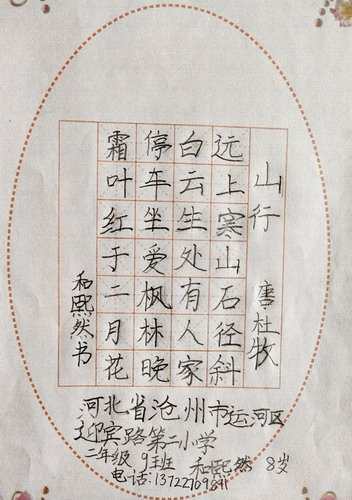 山行 唐 杜牧
远上寒山石径斜
白云生处有人家
停车坐爱枫林晚
霜叶红于二月花
和熙然书
河北省沧州市运河区
迎宾路第二小学
二年级 9班 和熙然 8岁
电话:13722769841